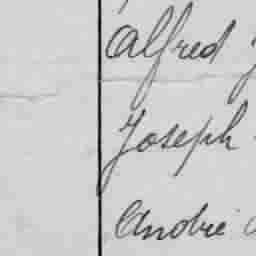 Alfred J
Joseph
André